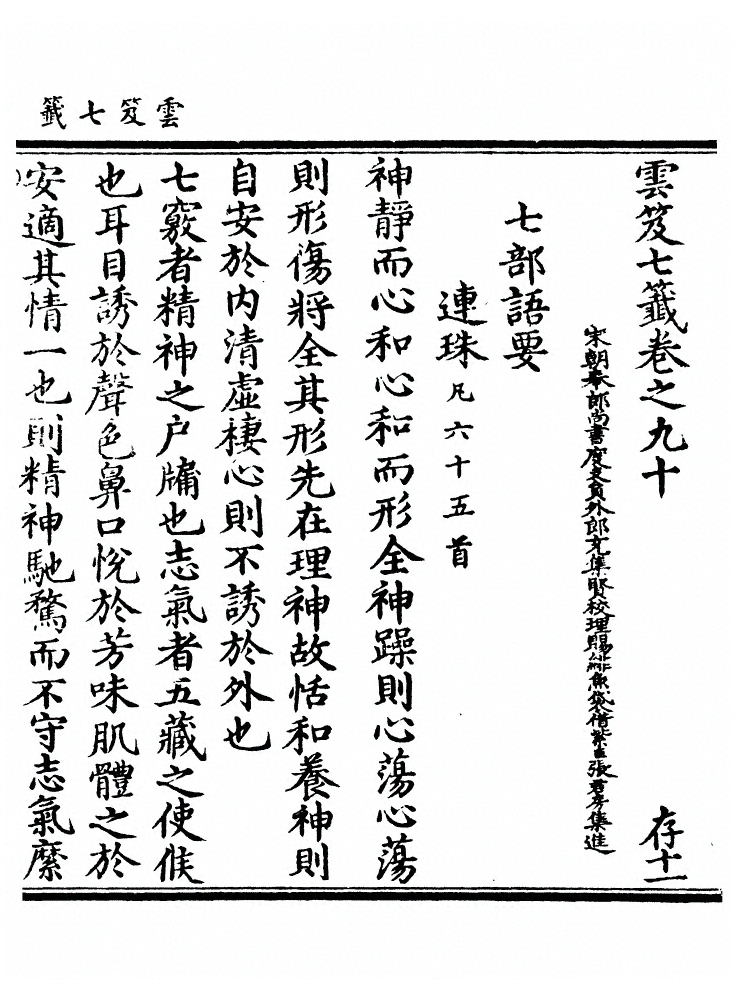 雲笈七籤
雲笈七籤卷之九十
存十一
宋朝奉郎尚書度支員外郎充集賢校理賜緋魚袋借紫臣張君房集進
七部語要
連珠凡六十五首
神靜而心和心和而形全神躁則心蕩心蕩
則形傷將全其形先在理神故恬和養神則
自安於內清虛棲心則不誘於外也
七竅者精神之户牖也志氣者五藏之使候
也耳目誘於聲色鼻口悅於芳味肌體之於
安適其情一也則精神馳騖而不守志氣縻